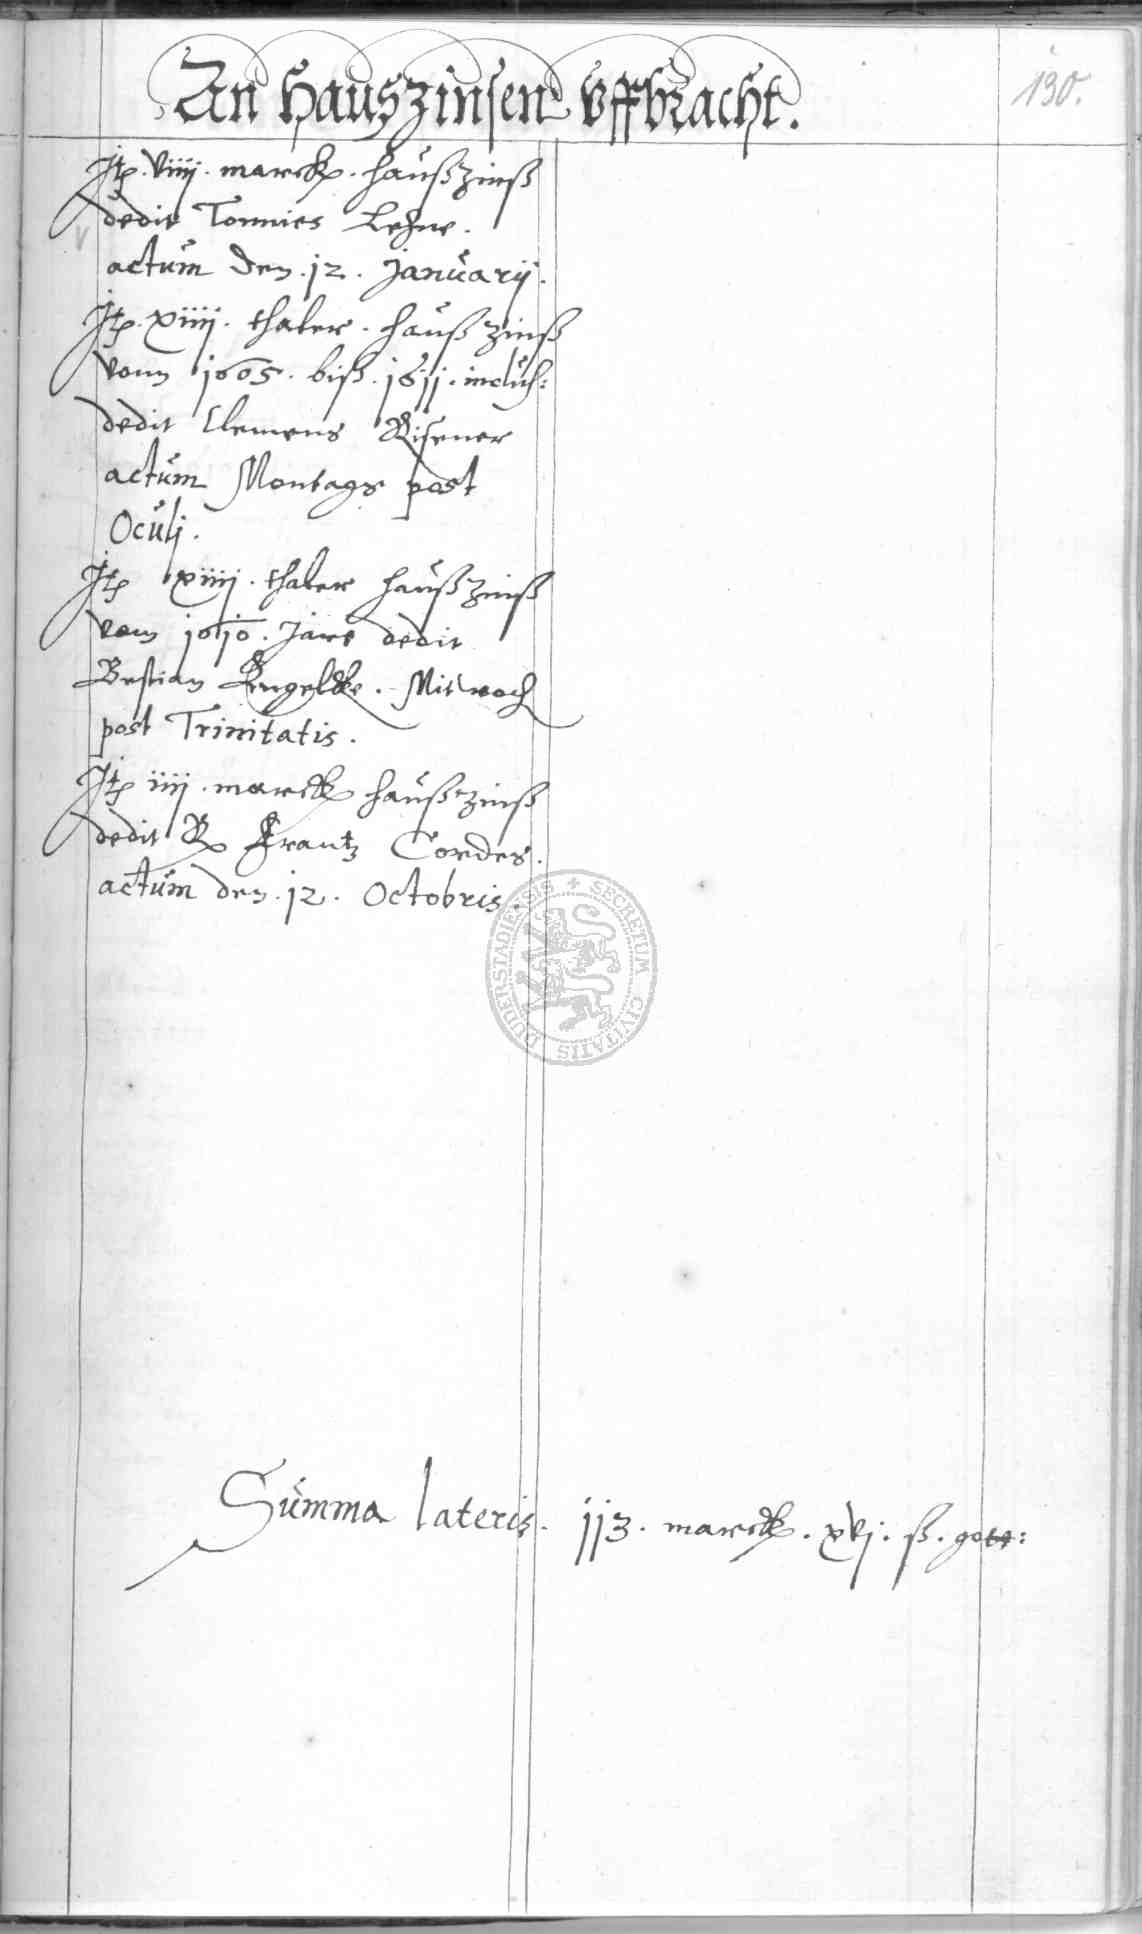 An Hauszinsen uffbracht.
130.
Itp. viiij. marck. haußzinß
dedit Tonnies Lehne.
actum den .12. Januarij.
Itp. xiiij. thaler. hauß zinß
vonn 1605. biß .1611. inclus:
dedit Clemens Risener
actum Montags post
Oculj.
Itp xiiij. thaler haußzinß
vom 1610. Jare dedit
Bestian Engelke. Mitwoch
post Trinitatis.
Itp iiij. marck haußzinß
dedit R Frantz Cordes.
actum den .12. Octobris.
SECRETUM CIVITATIS DUDERSTADIENSIS
Summa lateris. 113. marck. xvj. ß. gott: